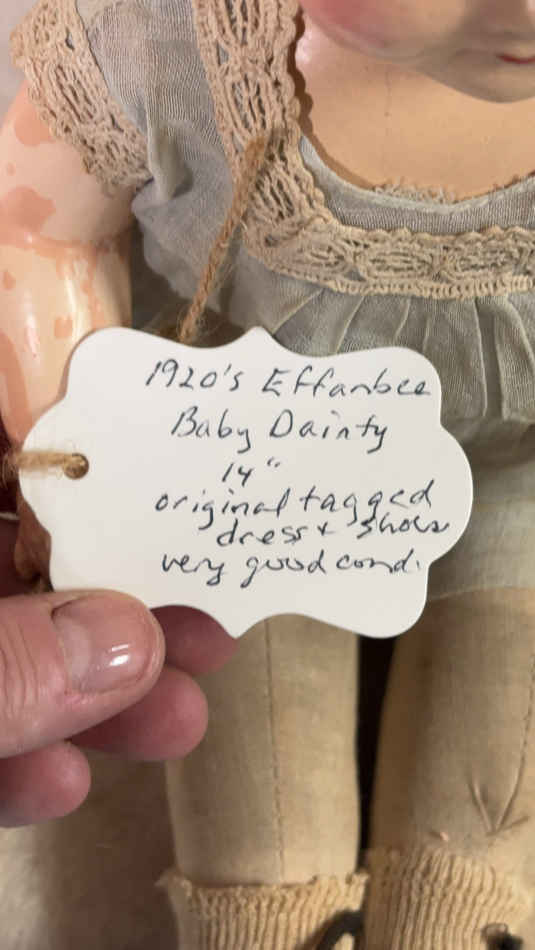 1920's Effanbee
Baby Dainty
14"
original tagged
dress + shoes
very good cond.